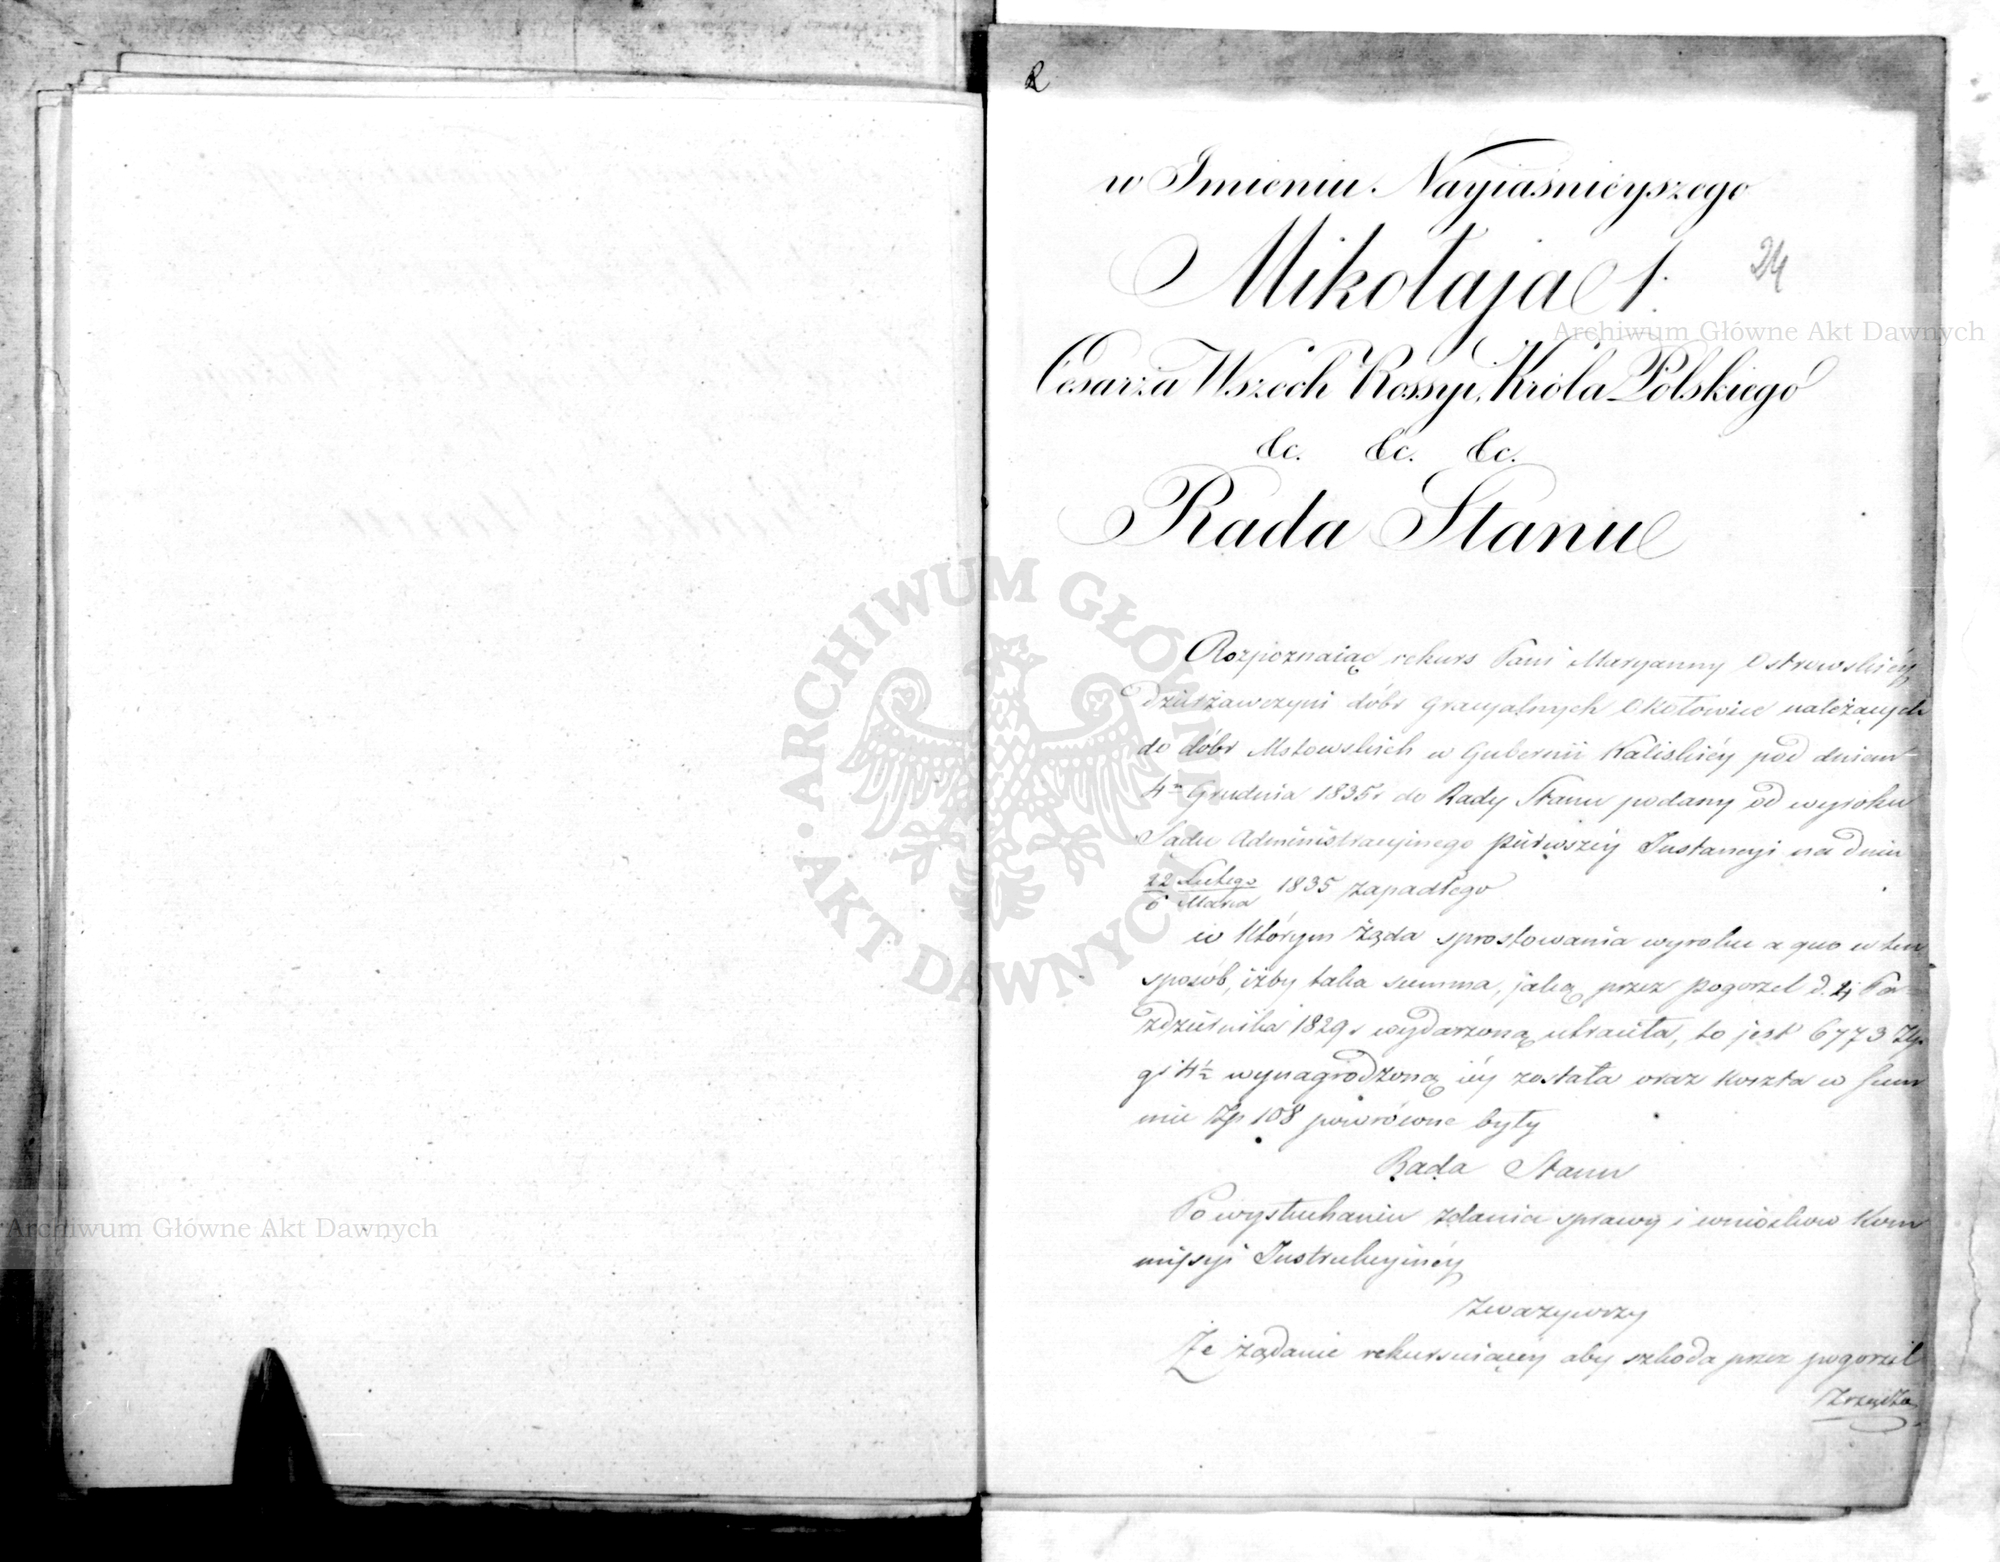 2
w Imieniu Nayiaśnieyszego
Mikołaja I.
24
Cesarza Wszech Rossyi, Króla Polskiego
&c. &c. &c.
Rada Stanu
Rozpoznaiąc rekurs Pani Maryanny Ostrowskiéy
Dzierżawczyni dóbr Gracyalnych Okołowice należących
do dóbr Mstowskich w Gubernii Kaliskiéy pod dniem
4m Grudnia 1835 r do Rady Stanu podany od wyroku
Sądu Administracyinego pierwszéy Instancyi na dniu
22 Lutego
6 Marca 1835 zapadłego
w którym żąda sprostowania wyroku a quo w ten
sposób, iżby taka summa, jaką przez pogorzel d. 24 Paź-
dziernika 1829 r wydarzoną utraciła, to jest 6773 Złp
gr 4½ wynagrodzoną iéy została oraz koszta w Sum-
mie Złp 108 powrócone były
Rada Stanu
Po wysłuchaniu zdania sprawy i wniosków Kom
missyi Instrukcyinéy
Zważywszy
Że żądanie rekursuiącéy aby szkoda przez pogorzel
Zrządzo
Archiwum Główne Akt Dawnych
Archiwum Główne Akt Dawnych
ARCHIWUM GŁÓWNE · AKT DAWNYCH ·